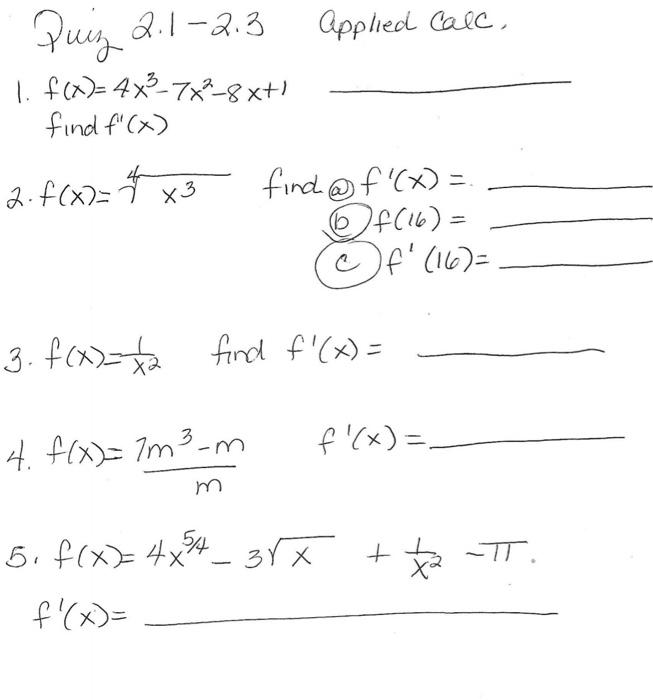 Quiz 2.1-2.3 Applied Calc.
1. f(x)= 4x³-7x²-8x+1 ________
find f'(x)
2. f(x)= ⁴√x³ find ⓐ f'(x) = ________
ⓑ f(16) = ________
ⓒ f'(16)= ________
3. f(x)= 1/x² find f'(x) = ________
4. f(x)= 7m³-m/m f'(x) = ________
5. f(x)= 4x^5/4 - 3√x + 1/x² - π.
f'(x)= ________